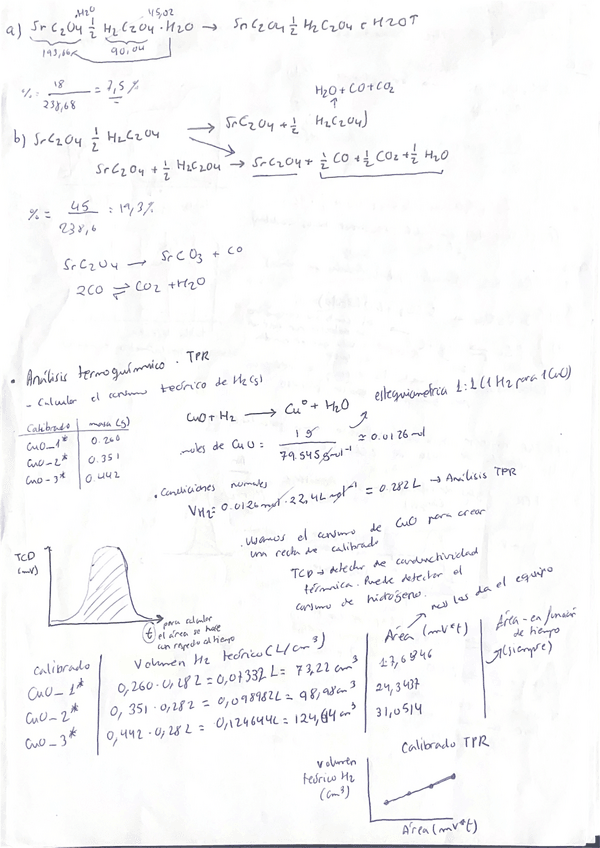 ·H2O 45,02
a) SrC2O4 ½ H2C2O4 · H2O → SrC2O4 ½ H2C2O4 + H2O↑
193,64 90,04
% = 18 / 238,68 = 7,5 %
H2O + CO + CO2
b) SrC2O4 ½ H2C2O4 → SrC2O4 + ½ H2C2O4
SrC2O4 + ½ H2C2O4 → SrC2O4 + ½ CO + ½ CO2 + ½ H2O
% = 45 / 238,6 = 19,3 %
SrC2O4 → SrCO3 + CO
2CO ⇌ CO2 + H2O
• Análisis termoquímico . TPR
- Calcular el consumo teórico de H2(g)
Calibrado masa (g)
CuO_1* 0.260
CuO_2* 0.351
CuO_3* 0.442
CuO + H2 → Cu° + H2O
estequiometría 1:1 (1 H2 para 1 CuO)
moles de CuO = 1 g / 79.545 g·mol⁻¹ ≅ 0.0126 mol
· Condiciones normales
VH2 = 0.0126 mol · 22,4 L mol⁻¹ = 0.282 L → Análisis TPR
. Usamos el consumo de CuO para crear
una recta de calibrado
TCD → detector de conductividad
térmica. Puede detectar el
consumo de hidrógeno.
TCD
(mV)
t
para calcular
el área se hace
con respecto al tiempo
nos las da el equipo
Calibrado Volumen H2 teórico (L/cm³) Área (mV*t) Área - en función
de tiempo
(siempre)
CuO_1* 0,260 · 0,282 = 0,07332 L = 73,22 cm³ 17,6946
CuO_2* 0,351 · 0,282 = 0,098982 L = 98,98 cm³ 24,3437
CuO_3* 0,442 · 0,282 = 0,124644 L = 124,64 cm³ 31,0514
Calibrado TPR
Volumen
teórico H2
(cm³)
Área (mV*t)